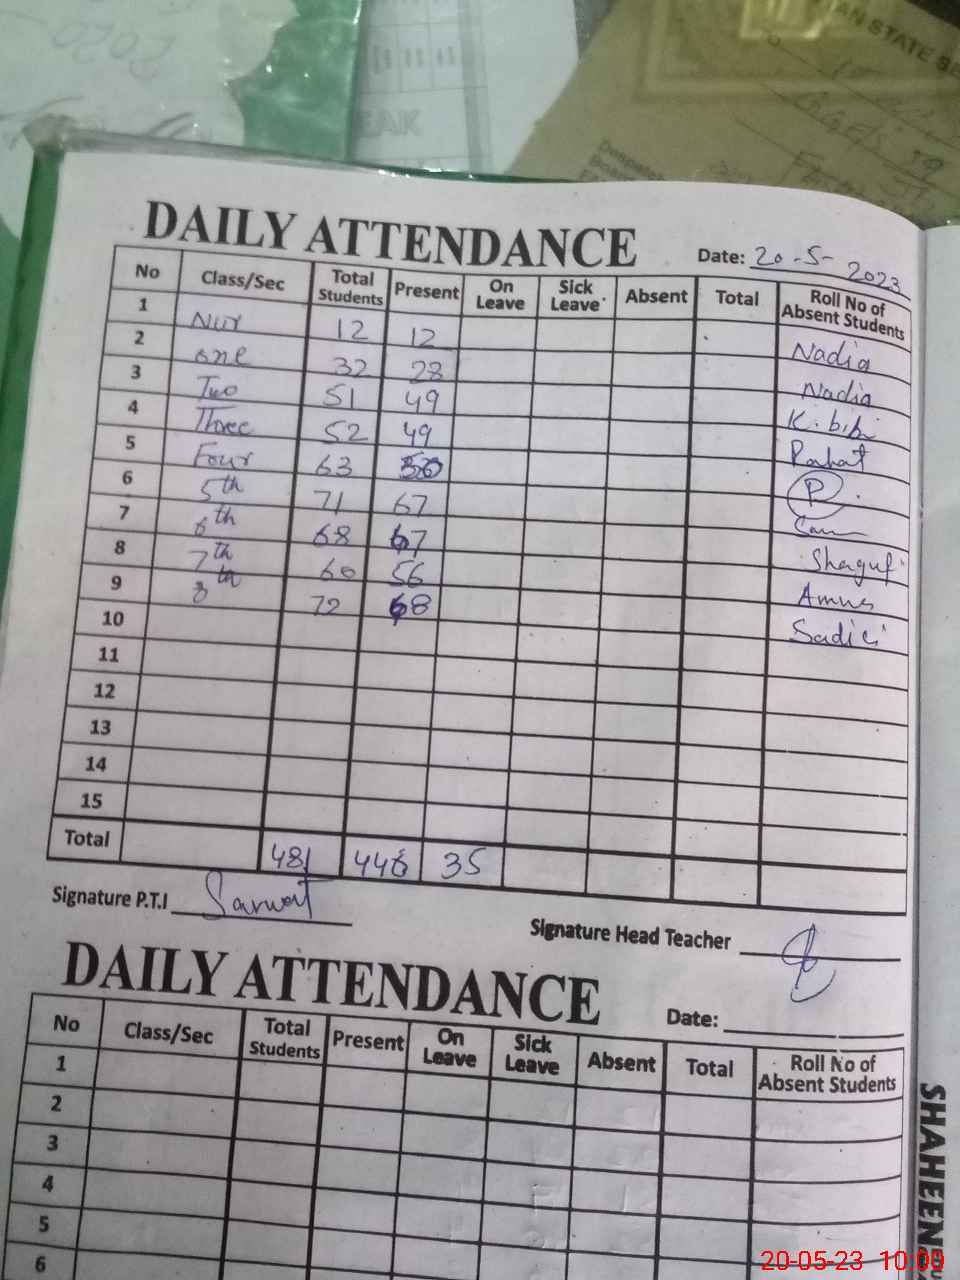 2020
EAK
AN STATE BE
DAILY ATTENDANCE Date: 20-5-2023
No Class/Sec Total Students Present On Leave Sick Leave Absent Total Roll No of Absent Students
1 Nur 12 12 Nadia
2 one 32 28 Nadia
3 Two 51 49 K. bibi
4 Three 52 49 Rahat
5 Four 63 50 P
6 5th 71 67
7 6th 68 67 Shaguf
8 7th 60 56 Amna
9 8th 72 68
10
11
12
13
14
15
Total 481 446 35
Signature P.T.I Sarwat Signature Head Teacher
DAILY ATTENDANCE Date:
No Class/Sec Total Students Present On Leave Sick Leave Absent Total Roll No of Absent Students
1
2
3
4
5
6
SHAHEEN
20-05-23 10:00